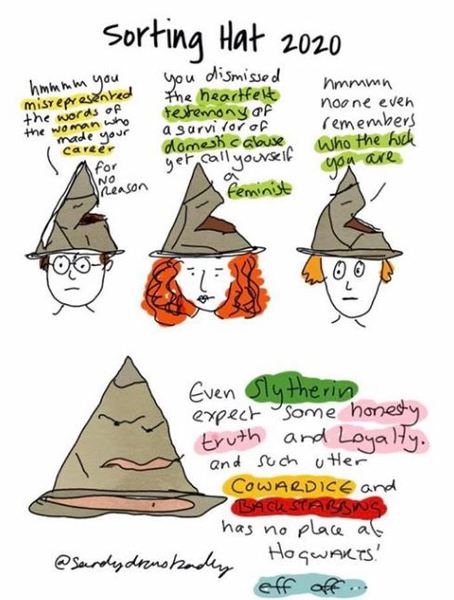 Sorting Hat 2020
hmmmm you
misrepresented
the words of
the woman who
made your
career
for
no
reason
you dismissed
the heartfelt
testemony of
a survitor of
domestic abuse
yet call yourself
a
feminist
hmmmm
no one even
remembers
who the fuck
you are
Even Slytherin
expect some honesty
truth and Loyalty.
and such utter
COWARDICE and
BACKSTABBING
has no place at
HOGWARTS!
eff off...